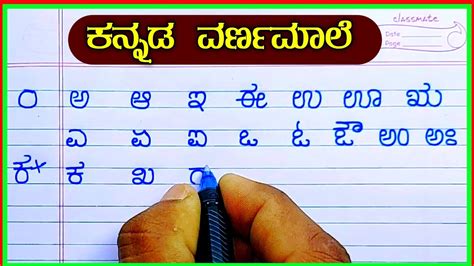 ಕನ್ನಡ ವರ್ಣಮಾಲೆ
classmate
Date
Page
೦ ಅ ಆ ಇ ಈ ಉ ಊ ಋ
ಎ ಏ ಐ ಒ ಓ ಔ ಅಂ ಅಃ
ಕ× ಕ ಖ